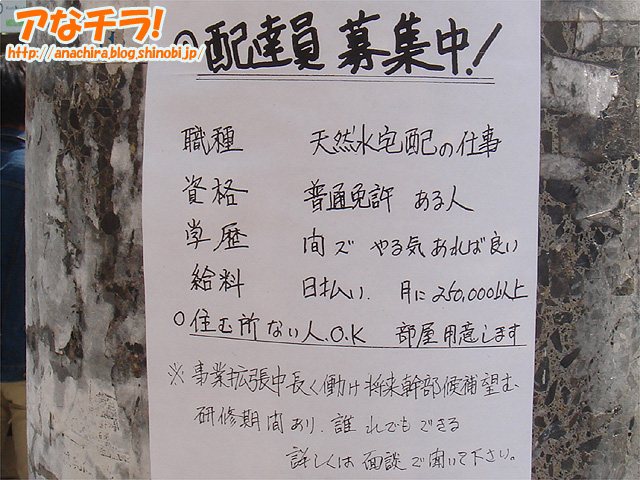 アなチラ!
http://anachira.blog.shinobi.jp/
○配達員募集中!
職種 天然水宅配の仕事
資格 普通免許 ある人
学歴 問ズ やる気あれば良い
給料 日払い. 月に250,000以上
○住む所ない人.O.K 部屋用意します
※事業拡張中長く働け将来幹部候補望む、
研修期間あり. 誰れでもできる
詳しくは面談で聞いて下さい。